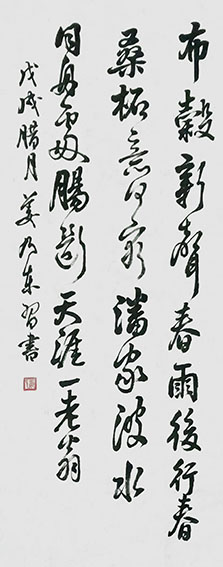 布穀新聲春雨後行春
桑柘意何窮潘家波水
腸斷天涯一老翁
戊戌腊月姜乃东習書